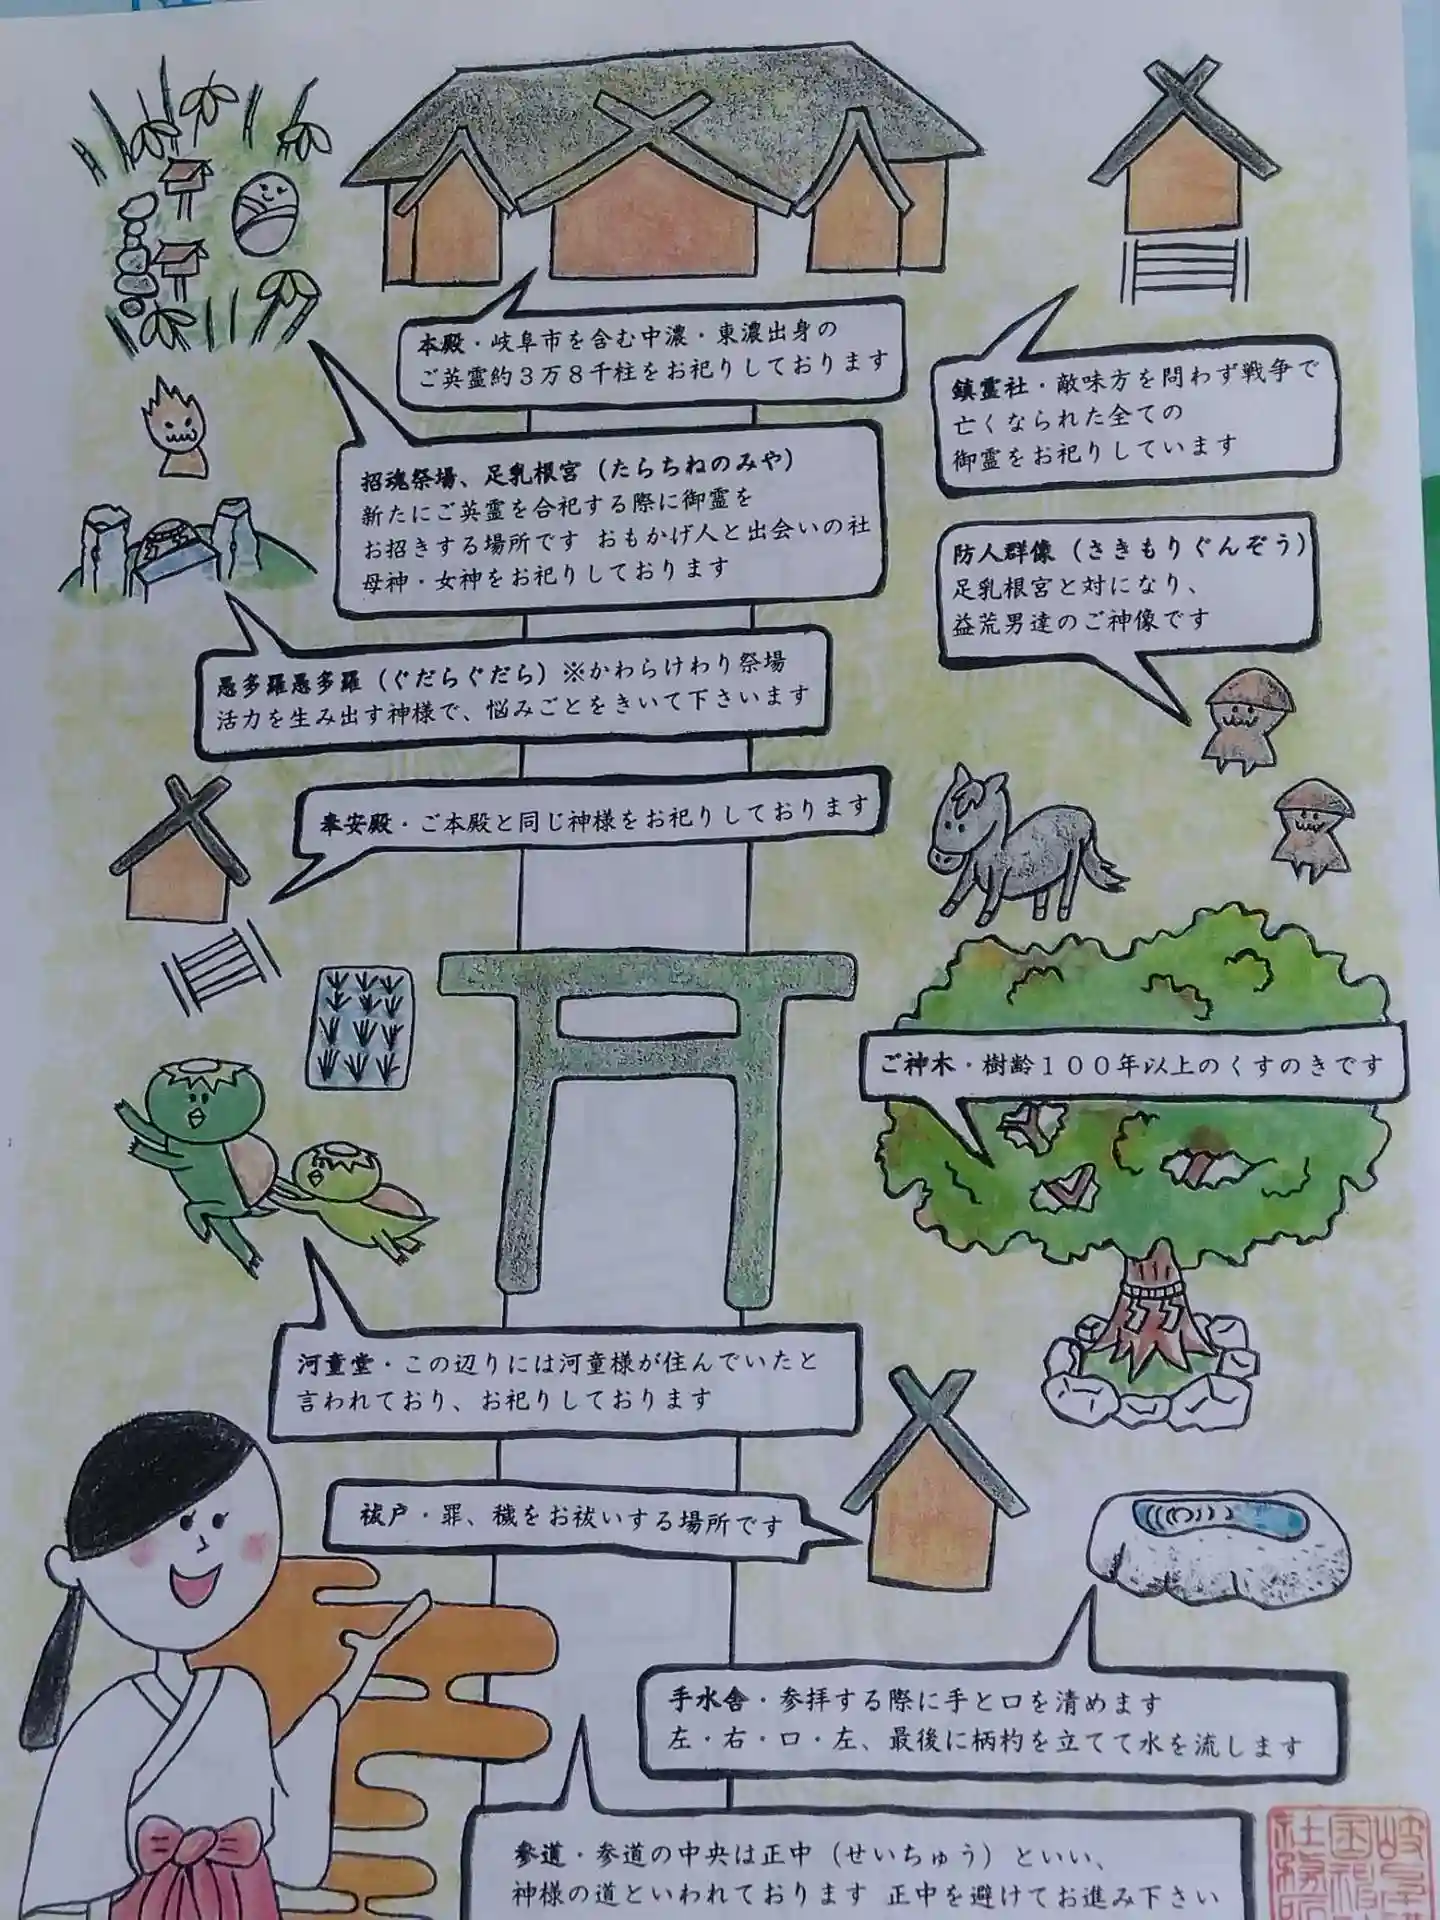 本殿・岐阜市を含む中濃・東濃出身の
ご英霊約３万８千柱をお祀りしております
鎮霊社・敵味方を問わず戦争で
亡くなられた全ての
御霊をお祀りしています
招魂祭場、足乳根宮（たらちねのみや）
新たにご英霊を合祀する際に御霊を
お招きする場所です おもかげ人と出会いの社
母神・女神をお祀りしております
防人群像（さきもりぐんぞう）
足乳根宮と対になり、
益荒男達のご神像です
愚多羅愚多羅（ぐだらぐだら）※かわらけわり祭場
活力を生み出す神様で、悩みごとをきいて下さいます
奉安殿・ご本殿と同じ神様をお祀りしております
ご神木・樹齢１００年以上のくすのきです
河童堂・この辺りには河童様が住んでいたと
言われており、お祀りしております
祓戸・罪、穢をお祓いする場所です
手水舎・参拝する際に手と口を清めます
左・右・口・左、最後に柄杓を立てて水を流します
参道・参道の中央は正中（せいちゅう）といい、
神様の道といわれております 正中を避けてお進み下さい